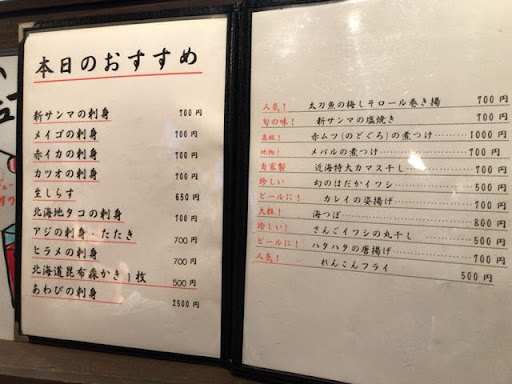 本日のおすすめ
新サンマの刺身 700円
メイゴの刺身 700円
赤イカの刺身 700円
カツオの刺身 700円
生しらす 650円
北海地タコの刺身 700円
アジの刺身・たたき 700円
ヒラメの刺身 700円
北海道昆布森かき1枚 500円
あわびの刺身 2500円
人気! 太刀魚の梅しそロール巻き揚 700円
旬の味! 新サンマの塩焼き 700円
高級! 赤ムツ(のどぐろ)の煮つけ 1000円
地物! メバルの煮つけ 700円
自家製 近海特大カマス干し 700円
珍しい 幻のはだかイワシ 500円
ビールに! カレイの姿揚げ 700円
大粒! 海つぼ 800円
珍しい! さんごイワシの丸干し 500円
ビールに! ハタハタの唐揚げ 700円
人気! れんこんフライ 500円